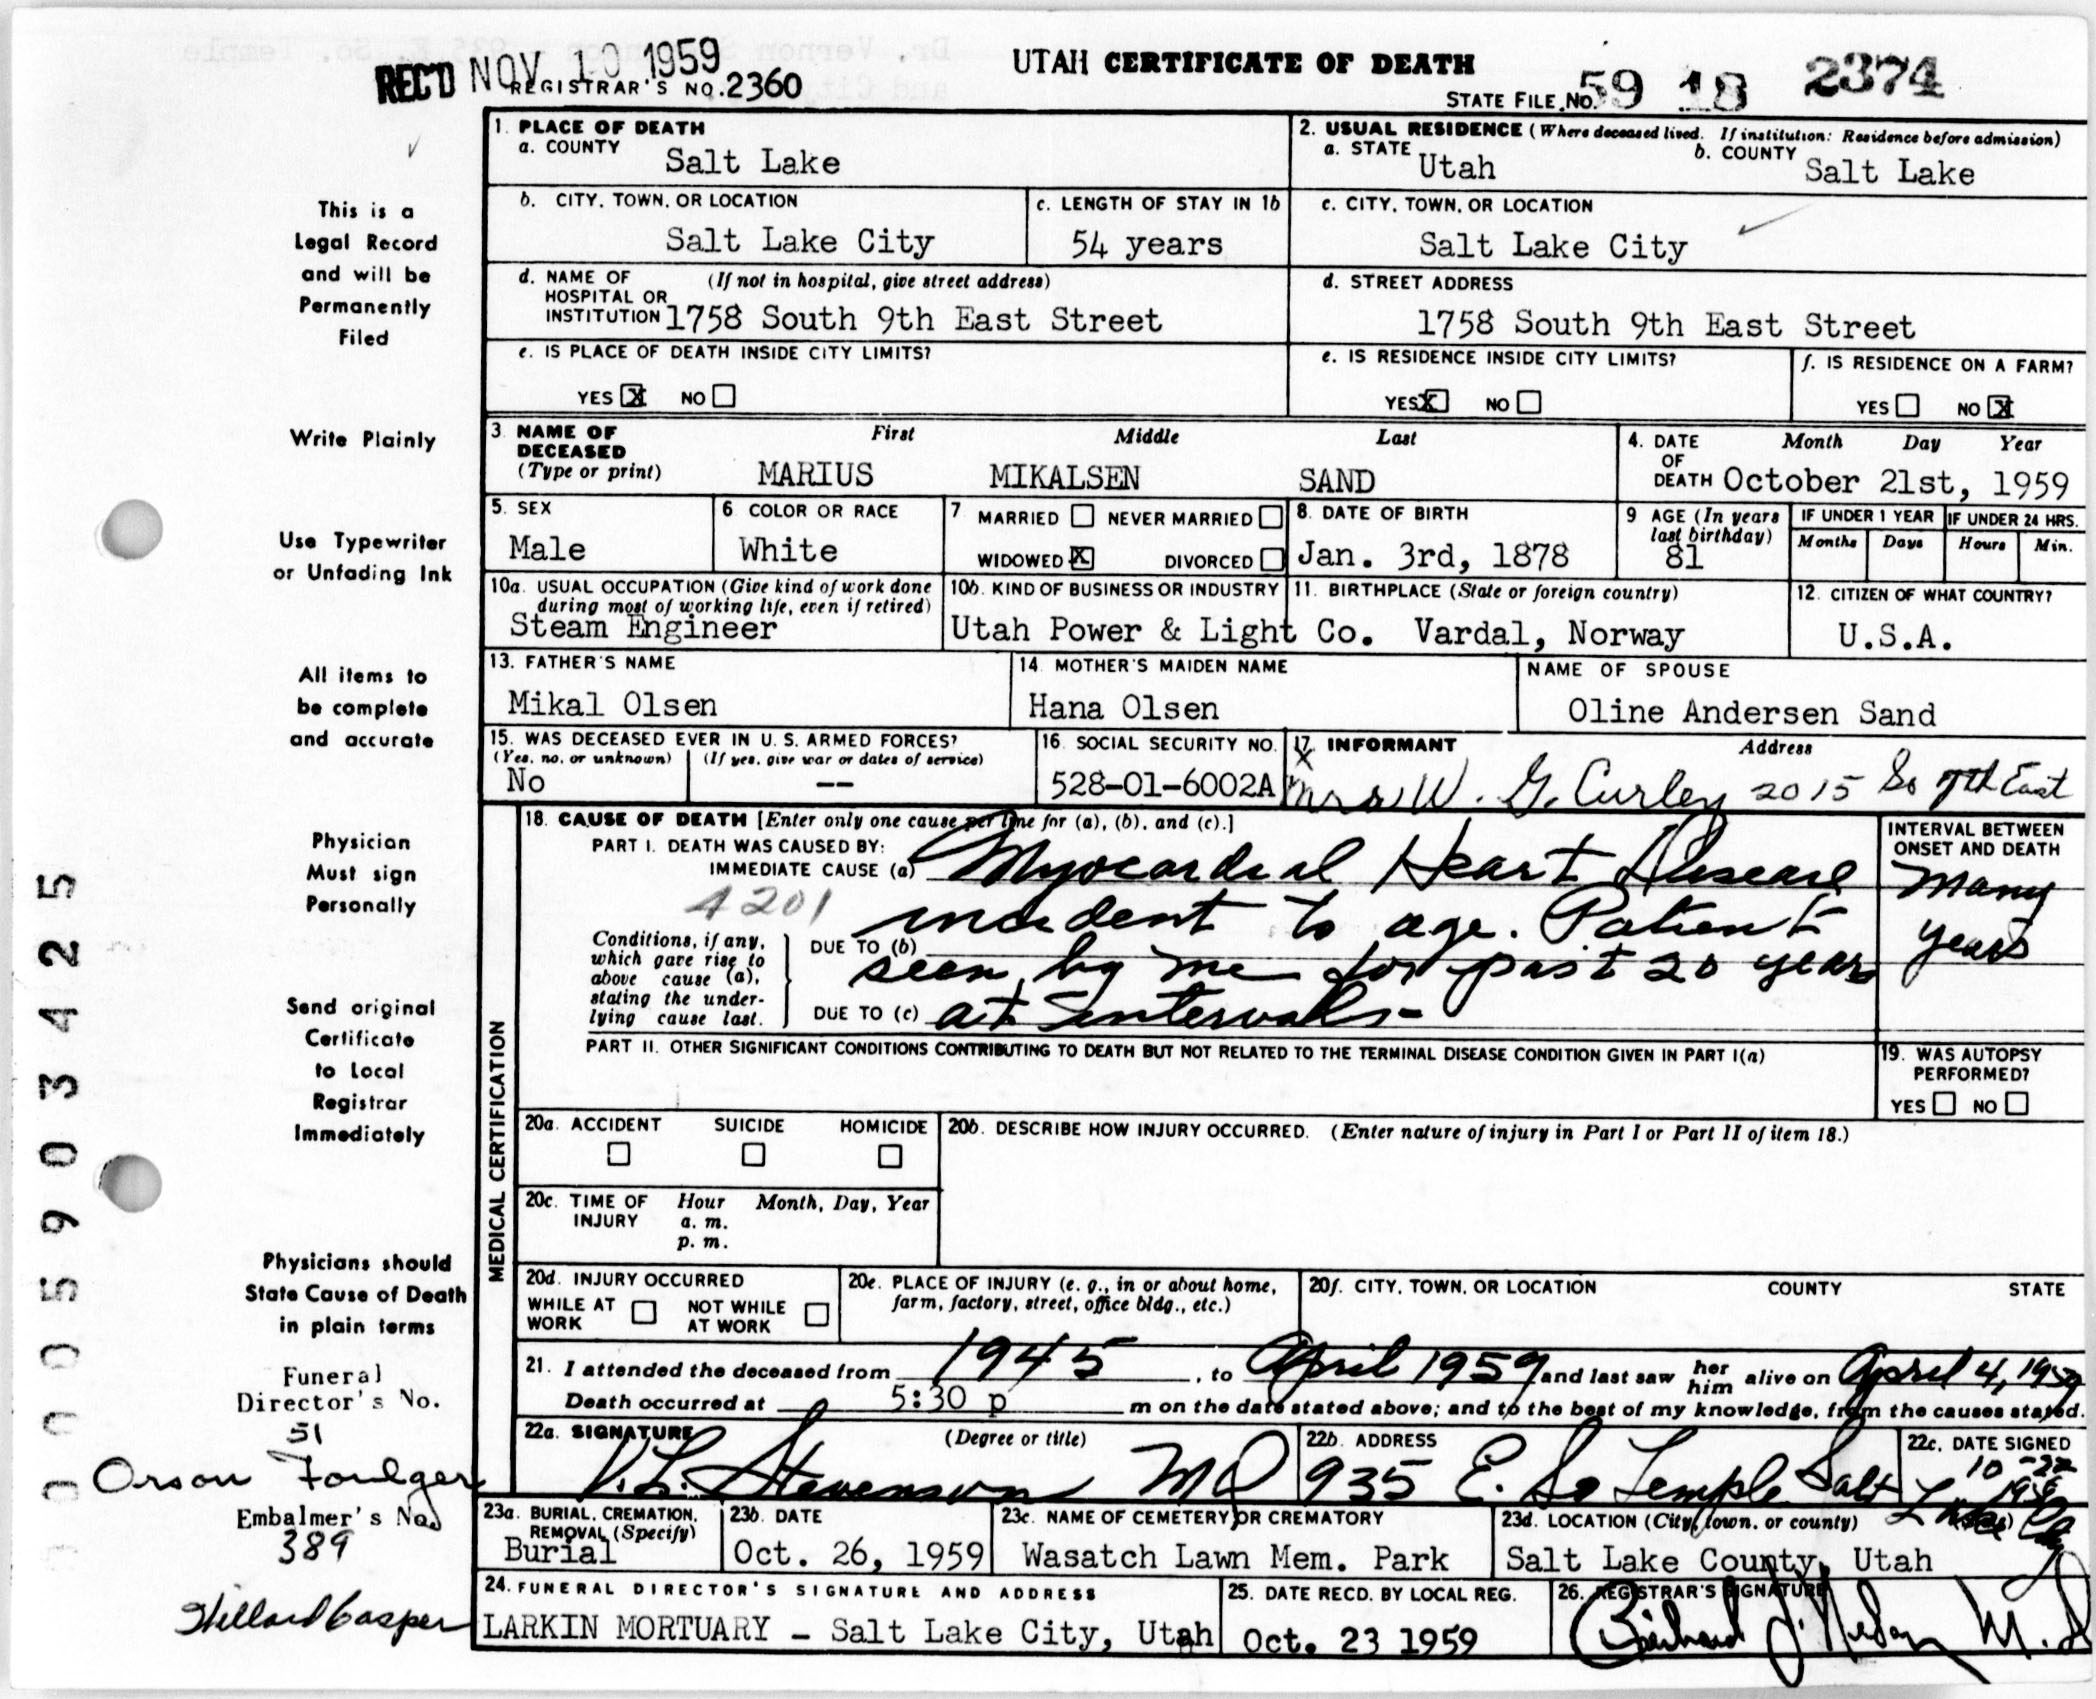 REC'D NOV 10 1959
REGISTRAR'S NO. 2360
UTAH CERTIFICATE OF DEATH
STATE FILE NO. 59 18 2374
This is a
Legal Record
and will be
Permanently
Filed
Write Plainly
Use Typewriter
or Unfading Ink
All items to
be complete
and accurate
Physician
Must sign
Personally
Send original
Certificate
to Local
Registrar
Immediately
Physicians should
State Cause of Death
in plain terms
Funeral
Director's No.
51
Orson Foulger
Embalmer's No.
389
Willard Casper
0005903425
1. PLACE OF DEATH
a. COUNTY Salt Lake
2. USUAL RESIDENCE (Where deceased lived. If institution: Residence before admission)
a. STATE Utah b. COUNTY Salt Lake
b. CITY, TOWN, OR LOCATION Salt Lake City
c. LENGTH OF STAY IN 1b 54 years
c. CITY, TOWN, OR LOCATION Salt Lake City
d. NAME OF HOSPITAL OR INSTITUTION (If not in hospital, give street address)
1758 South 9th East Street
d. STREET ADDRESS
1758 South 9th East Street
e. IS PLACE OF DEATH INSIDE CITY LIMITS?
YES X NO
e. IS RESIDENCE INSIDE CITY LIMITS?
YES X NO
f. IS RESIDENCE ON A FARM?
YES NO X
3. NAME OF DECEASED (Type or print) First Middle Last
MARIUS MIKALSEN SAND
4. DATE OF DEATH Month Day Year
October 21st, 1959
5. SEX Male
6. COLOR OR RACE White
7. MARRIED NEVER MARRIED
WIDOWED X DIVORCED
8. DATE OF BIRTH Jan. 3rd, 1878
9. AGE (In years last birthday) 81
IF UNDER 1 YEAR Months Days
IF UNDER 24 HRS. Hours Min.
10a. USUAL OCCUPATION (Give kind of work done during most of working life, even if retired)
Steam Engineer
10b. KIND OF BUSINESS OR INDUSTRY
Utah Power & Light Co.
11. BIRTHPLACE (State or foreign country)
Vardal, Norway
12. CITIZEN OF WHAT COUNTRY?
U.S.A.
13. FATHER'S NAME
Mikal Olsen
14. MOTHER'S MAIDEN NAME
Hana Olsen
NAME OF SPOUSE
Oline Andersen Sand
15. WAS DECEASED EVER IN U. S. ARMED FORCES?
(Yes, no, or unknown) (If yes, give war or dates of service)
No --
16. SOCIAL SECURITY NO.
528-01-6002A
17. INFORMANT Address
X Mrs. W. G. Curley 2015 So 7th East
18. CAUSE OF DEATH [Enter only one cause per line for (a), (b), and (c).]
PART I. DEATH WAS CAUSED BY:
IMMEDIATE CAUSE (a) Myocardial Heart Disease
4201
incident to age. Patient
Conditions, if any, which gave rise to above cause (a), stating the underlying cause last.
DUE TO (b) seen by me for past 20 years
DUE TO (c) at intervals-
INTERVAL BETWEEN ONSET AND DEATH
Many years
PART II. OTHER SIGNIFICANT CONDITIONS CONTRIBUTING TO DEATH BUT NOT RELATED TO THE TERMINAL DISEASE CONDITION GIVEN IN PART I(a)
19. WAS AUTOPSY PERFORMED?
YES NO
MEDICAL CERTIFICATION
20a. ACCIDENT SUICIDE HOMICIDE
20b. DESCRIBE HOW INJURY OCCURRED. (Enter nature of injury in Part I or Part II of item 18.)
20c. TIME OF INJURY Hour Month, Day, Year
a. m.
p. m.
20d. INJURY OCCURRED
WHILE AT WORK NOT WHILE AT WORK
20e. PLACE OF INJURY (e. g., in or about home, farm, factory, street, office bldg., etc.)
20f. CITY, TOWN, OR LOCATION COUNTY STATE
21. I attended the deceased from 1945, to April 1959 and last saw her him alive on April 4, 1959
Death occurred at 5:30 p m on the date stated above; and to the best of my knowledge, from the causes stated.
22a. SIGNATURE (Degree or title)
V. L. Stevenson MD
22b. ADDRESS
935 E. So Temple Salt Lake City
22c. DATE SIGNED
10-22 1959
23a. BURIAL, CREMATION, REMOVAL (Specify)
Burial
23b. DATE
Oct. 26, 1959
23c. NAME OF CEMETERY OR CREMATORY
Wasatch Lawn Mem. Park
23d. LOCATION (City, town, or county) (State)
Salt Lake County, Utah
24. FUNERAL DIRECTOR'S SIGNATURE AND ADDRESS
LARKIN MORTUARY - Salt Lake City, Utah
25. DATE RECD. BY LOCAL REG.
Oct. 23 1959
26. REGISTRAR'S SIGNATURE
Nelson M.D